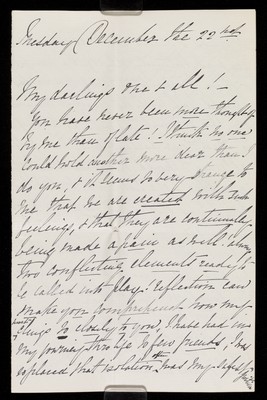 Tuesday December the 22nd
My darlings one & all! –
You have never been more thought of
by me than of late! I think no one
could hold another more dear than I
do you, & it seems so very strange to
me that we are created with such
feelings, & that they are continually
being made a pain as well! always
two conflicting elements ready to
be called into play! Reflection can
make you comprehend how my
clings so closely to you, I have had in
my journey thro' life so few friends, & was
so placed that isolation was my